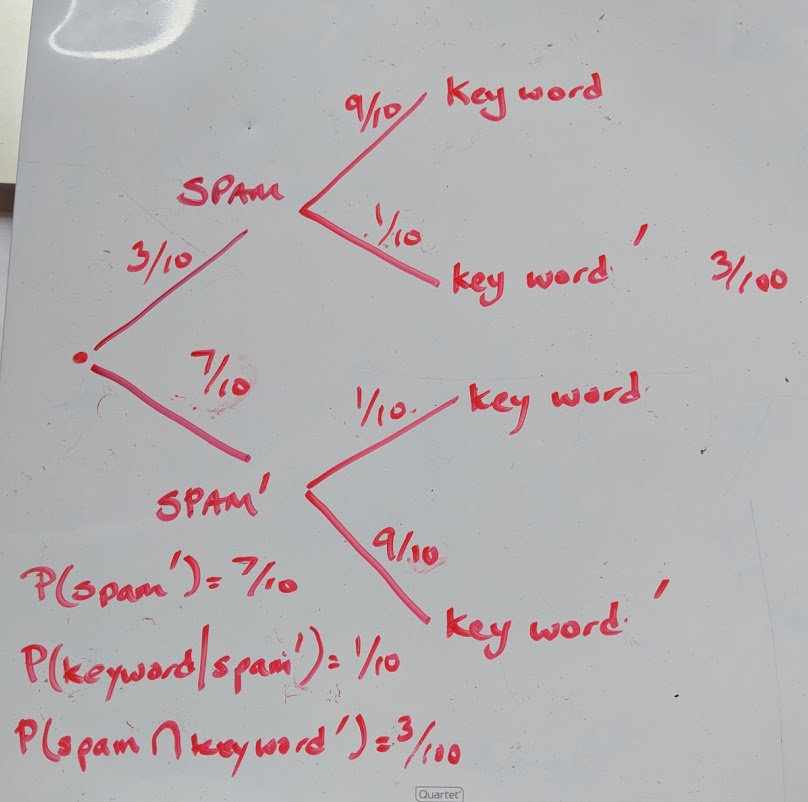 9/10 Key word
SPAM
1/10
3/10
key word ' 3/100
7/10
1/10 key word
SPAM'
9/10
P(spam')= 7/10
key word '
P(keyword|spam')= 1/10
P(spam ∩ keyword')= 3/100
Quartet